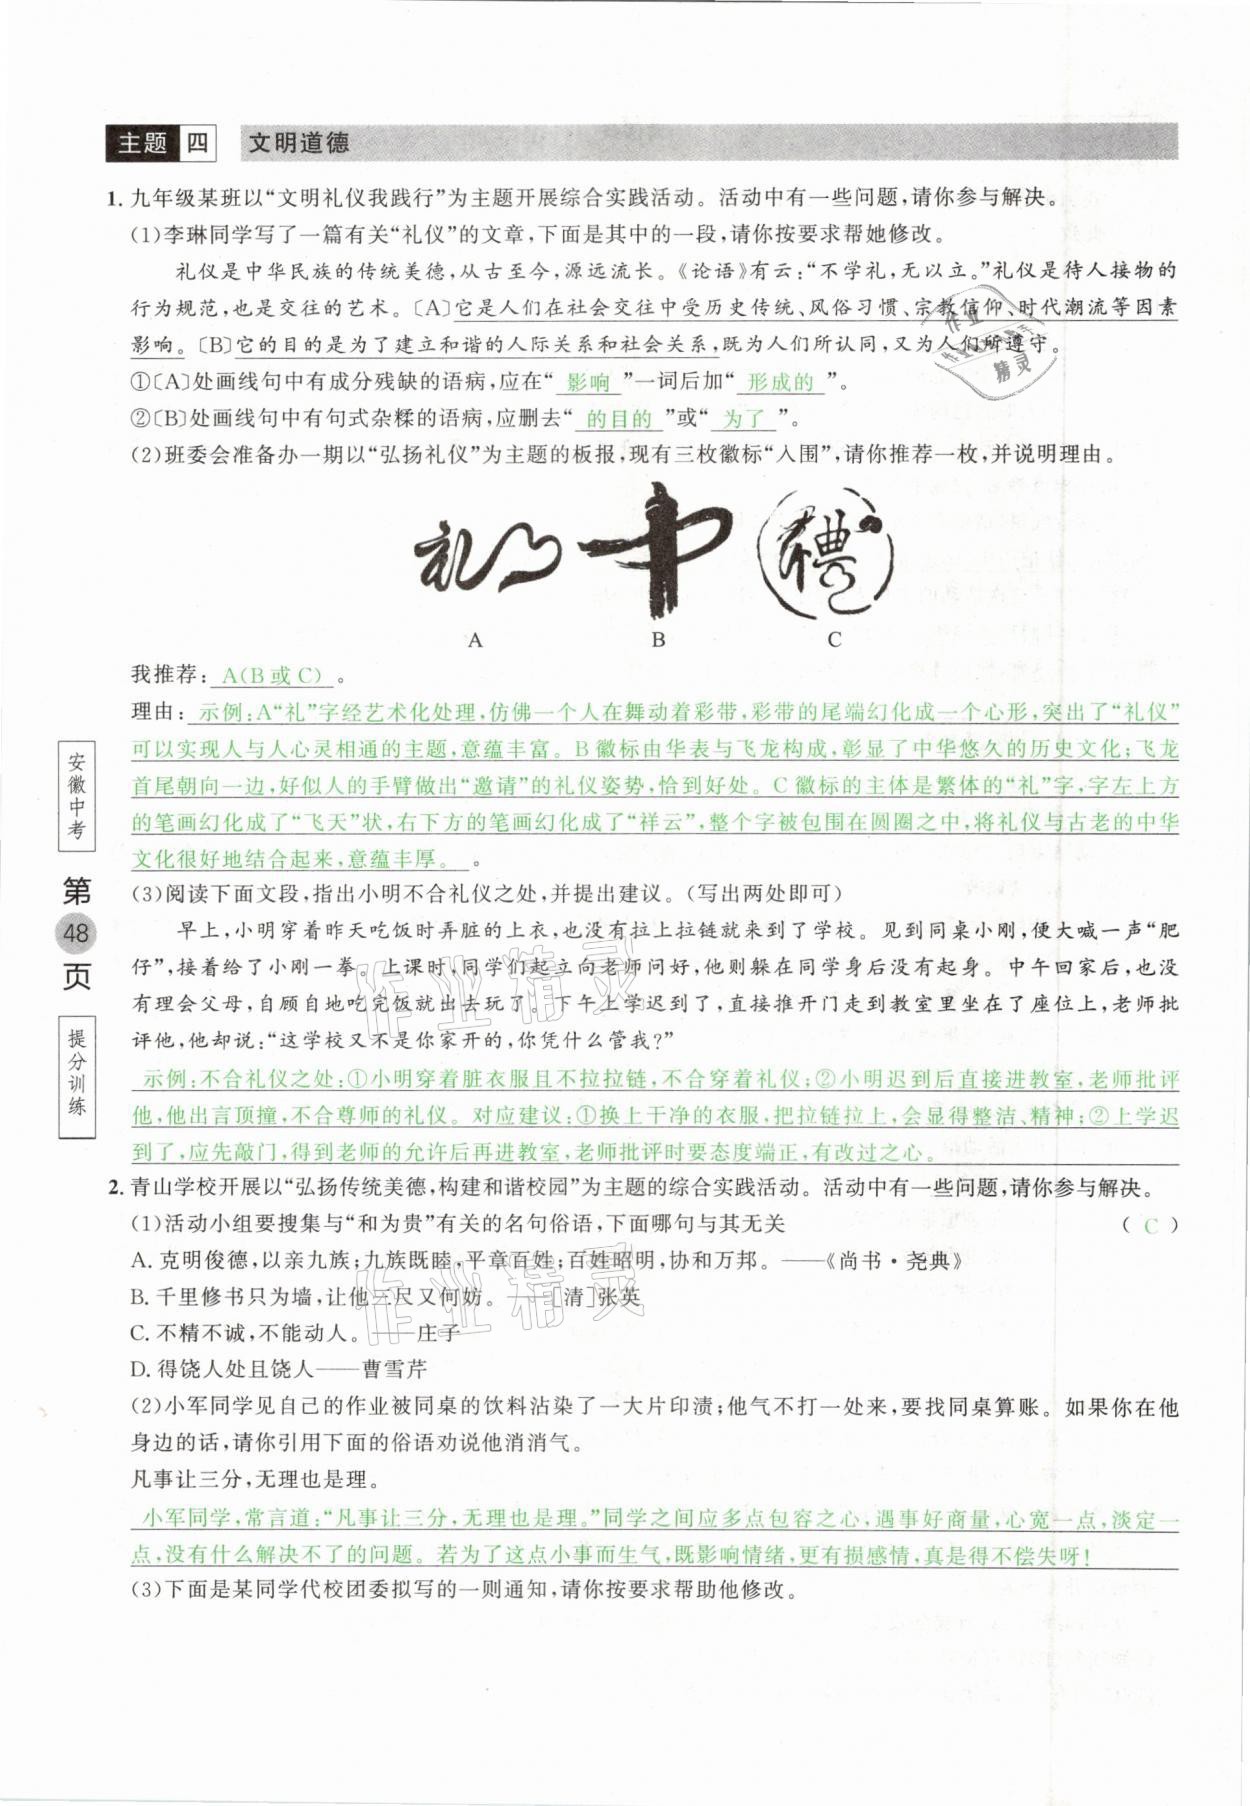 主题 四 文明道德
1. 九年级某班以“文明礼仪我践行”为主题开展综合实践活动。活动中有一些问题,请你参与解决。
(1)李琳同学写了一篇有关“礼仪”的文章,下面是其中的一段,请你按要求帮她修改。
礼仪是中华民族的传统美德,从古至今,源远流长。《论语》有云:“不学礼,无以立。”礼仪是待人接物的
行为规范,也是交往的艺术。〔A〕它是人们在社会交往中受历史传统、风俗习惯、宗教信仰、时代潮流等因素
影响。〔B〕它的目的是为了建立和谐的人际关系和社会关系,既为人们所认同,又为人们所遵守。
①〔A〕处画线句中有成分残缺的语病,应在“ 影响 ”一词后加“ 形成的 ”。
②〔B〕处画线句中有句式杂糅的语病,应删去“ 的目的 ”或“ 为了 ”。
(2)班委会准备办一期以“弘扬礼仪”为主题的板报,现有三枚徽标“入围”,请你推荐一枚,并说明理由。
A B C
我推荐: A(B或C) 。
理由: 示例:A“礼”字经艺术化处理,仿佛一个人在舞动着彩带,彩带的尾端幻化成一个心形,突出了“礼仪”
可以实现人与人心灵相通的主题,意蕴丰富。B徽标由华表与飞龙构成,彰显了中华悠久的历史文化;飞龙
首尾朝向一边,好似人的手臂做出“邀请”的礼仪姿势,恰到好处。C徽标的主体是繁体的“礼”字,字左上方
的笔画幻化成了“飞天”状,右下方的笔画幻化成了“祥云”,整个字被包围在圆圈之中,将礼仪与古老的中华
文化很好地结合起来,意蕴丰厚。 。
(3)阅读下面文段,指出小明不合礼仪之处,并提出建议。(写出两处即可)
早上,小明穿着昨天吃饭时弄脏的上衣,也没有拉上拉链就来到了学校。见到同桌小刚,便大喊一声“肥
仔”,接着给了小刚一拳。上课时,同学们起立向老师问好,他则躲在同学身后没有起身。中午回家后,也没
有理会父母,自顾自地吃完饭就出去玩了。下午上学迟到了,直接推开门走到教室里坐在了座位上,老师批
评他,他却说:“这学校又不是你家开的,你凭什么管我?”
示例:不合礼仪之处:①小明穿着脏衣服且不拉拉链,不合穿着礼仪;②小明迟到后直接进教室,老师批评
他,他出言顶撞,不合尊师的礼仪。对应建议:①换上干净的衣服,把拉链拉上,会显得整洁、精神;②上学迟
到了,应先敲门,得到老师的允许后再进教室,老师批评时要态度端正,有改过之心。
2. 青山学校开展以“弘扬传统美德,构建和谐校园”为主题的综合实践活动。活动中有一些问题,请你参与解决。
(1)活动小组要搜集与“和为贵”有关的名句俗语,下面哪句与其无关 ( C )
A. 克明俊德,以亲九族;九族既睦,平章百姓;百姓昭明,协和万邦。——《尚书·尧典》
B. 千里修书只为墙,让他三尺又何妨。——[清]张英
C. 不精不诚,不能动人。——庄子
D. 得饶人处且饶人——曹雪芹
(2)小军同学见自己的作业被同桌的饮料沾染了一大片印渍;他气不打一处来,要找同桌算账。如果你在他
身边的话,请你引用下面的俗语劝说他消消气。
凡事让三分,无理也是理。
小军同学,常言道:“凡事让三分,无理也是理。”同学之间应多点包容之心,遇事好商量,心宽一点,淡定一
点,没有什么解决不了的问题。若为了这点小事而生气,既影响情绪,更有损感情,真是得不偿失呀!
(3)下面是某同学代校团委拟写的一则通知,请你按要求帮助他修改。
安徽中考
第
48
页
提分训练
作业精灵
作业精灵